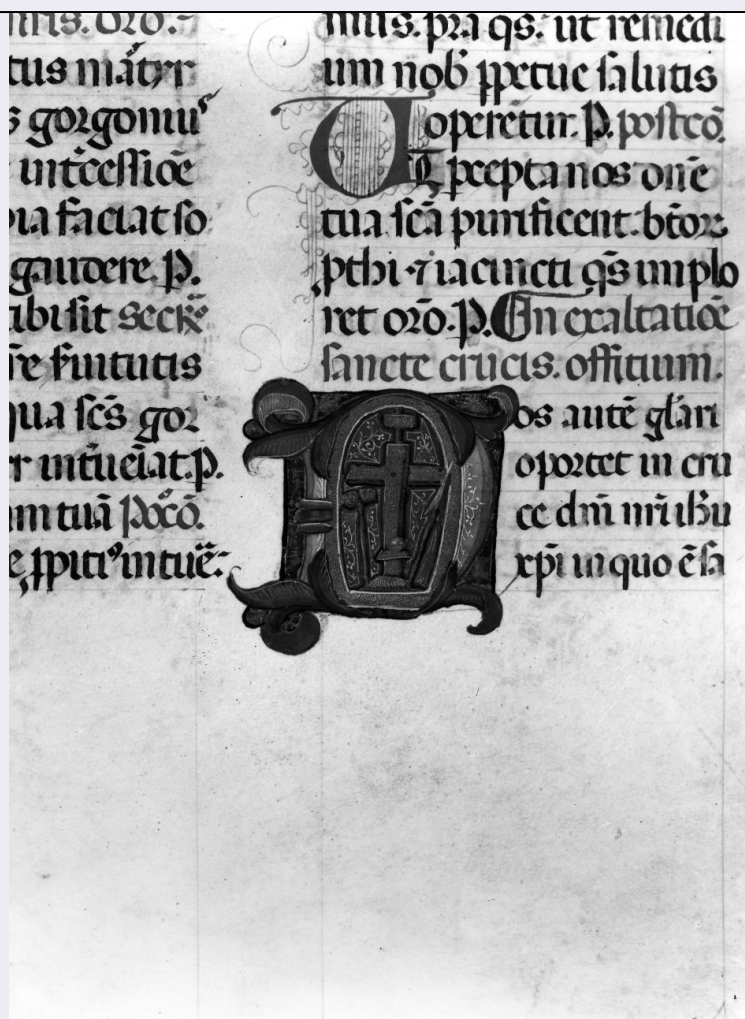 oro.
tus mr̃tyr
s gorgoniuˢ
int̃cessiõe
pia faciat so
gaudere. P.
tibi sit secr̃e
re s̃uitutis
qua sc̃s gor
r int̃ueiat. P.
am tuã Pocõ.
mus. p̃ra q̃s. ut remedi
um nob̃ p̱petue salutis
operetur. P. postcõ.
Ut p̱cepta nos dñe
tua sc̃a purificent. b̃tor̃
p̱thi ⁊ iacincti q̃s implo
ret orõ. P. In exaltatiõe
sancte crucis. offitium.
Nos autẽ gl̃ari
oportet in cru
ce dñi nr̃i ih̃u
xp̃i in quo ẽ sa